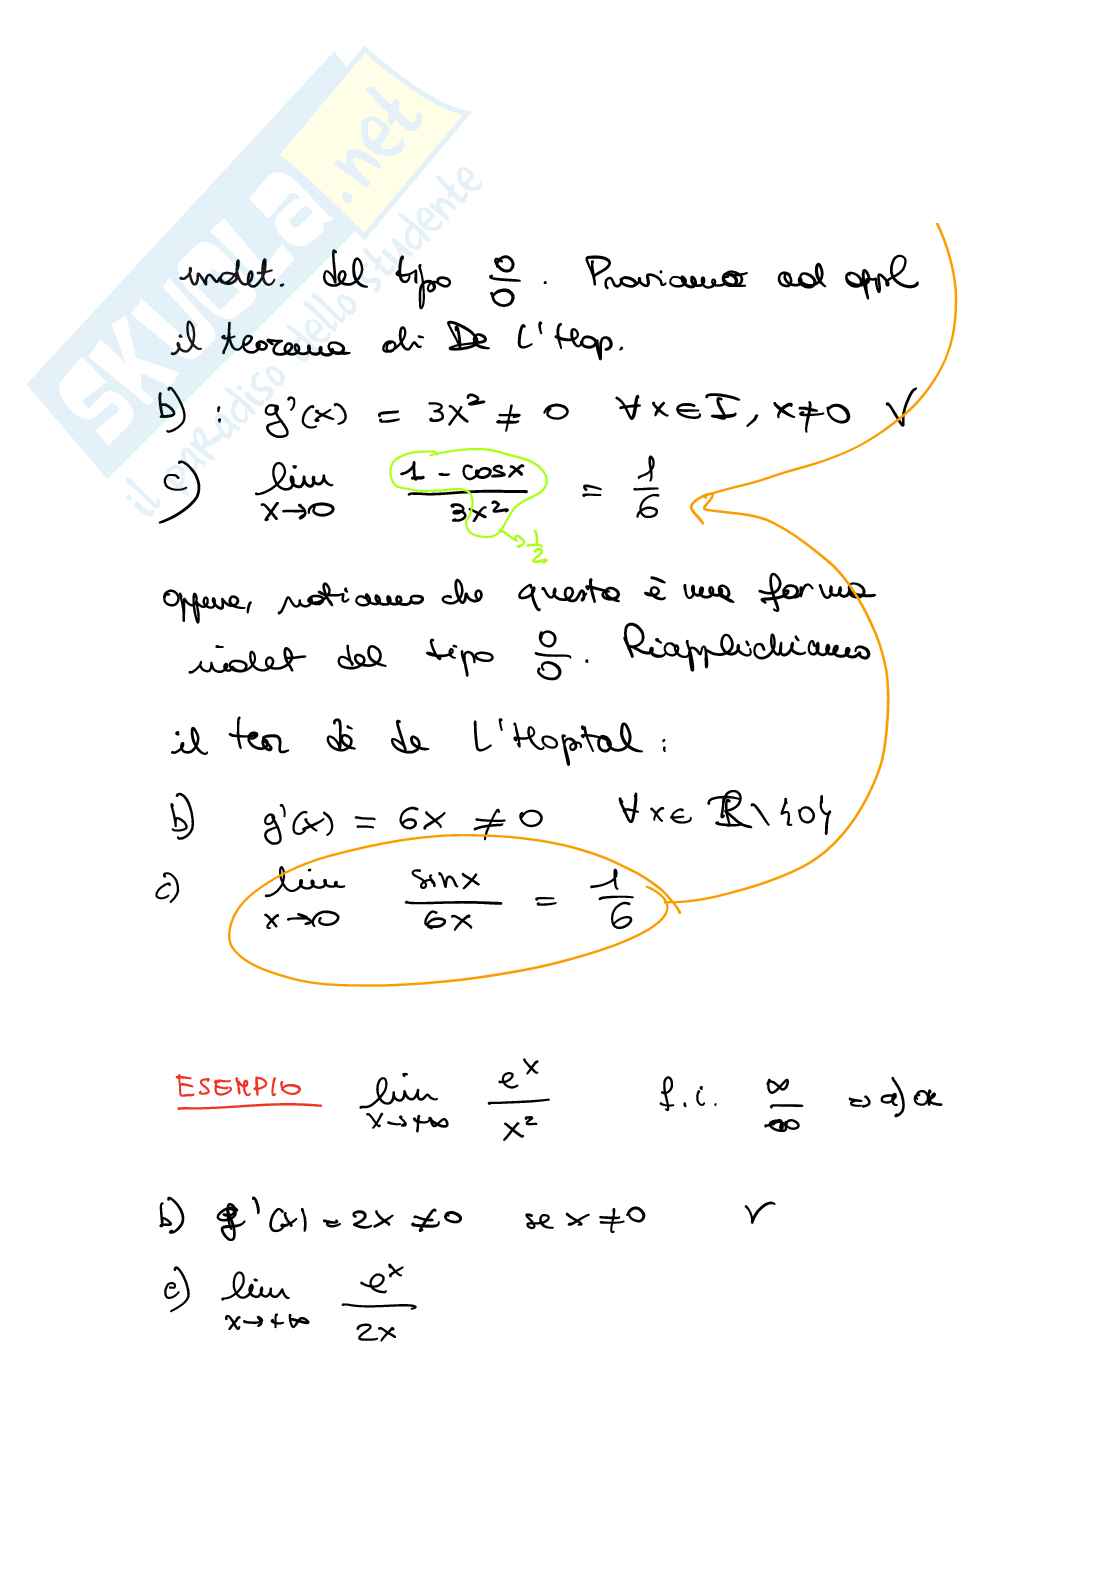 SKUOLA.net
il paradiso dello studente
indet. del tipo 0/0. Proviamo ad appl
il teorema di De L'Hop.
b) : g'(x) = 3x² ≠ 0 ∀x∈I, x≠0 √
c) lim x→0 (1 - cosx)/(3x²) = 1/6
→ 1/2
oppure, notiamo che questa è una forma
indet del tipo 0/0. Riapplichiamo
il teor di de L'Hopital:
b) g'(x) = 6x ≠ 0 ∀x∈ℝ\{0}
c) lim x→0 sinx/6x = 1/6
ESEMPIO lim x→+∞ eˣ/x² f.i. ∞/∞ ⇒ a) ok
b) g'(x) = 2x ≠ 0 se x ≠ 0 √
c) lim x→+∞ eˣ/2x